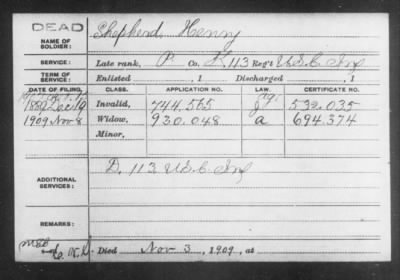 DEAD
NAME OF SOLDIER: Shepherd, Henry
SERVICE: Late rank, P. Co. K, 113 Reg't U.S.C. Inf
TERM OF SERVICE: Enlisted , 1 Discharged , 1
DATE OF FILING. CLASS. APPLICATION NO. LAW. CERTIFICATE NO.
1889 Dec 16 Invalid, 744.565 539.035
1909 Nov 8 Widow, 930.048 a 694.374
Minor,
ADDITIONAL SERVICES: D. 113 U.S.C. Inf
REMARKS:
Died Nov 3, 1909, at